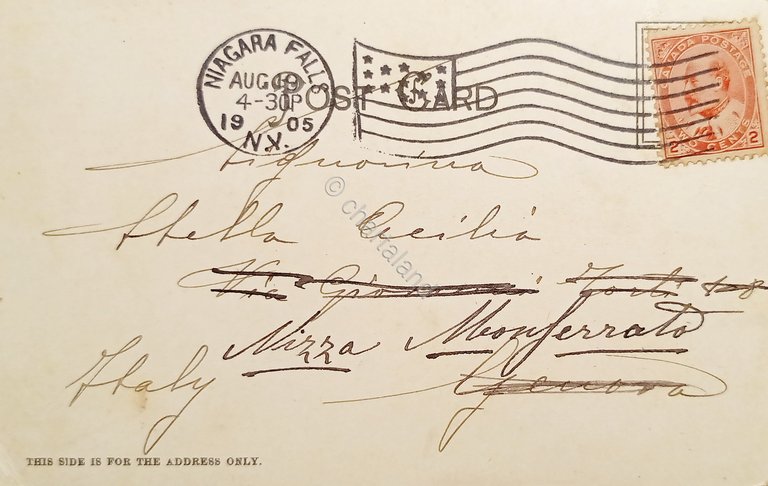 NIAGARA FALLS
AUG 19
4-30P
1905
N.Y.
POST CARD
CANADA POSTAGE
2 TWO CENTS 2
Signorina
© chartaland
Stella Cecilia
Via Giovanni Torti
Nizza Monferrato
Italy Genova
THIS SIDE IS FOR THE ADDRESS ONLY.